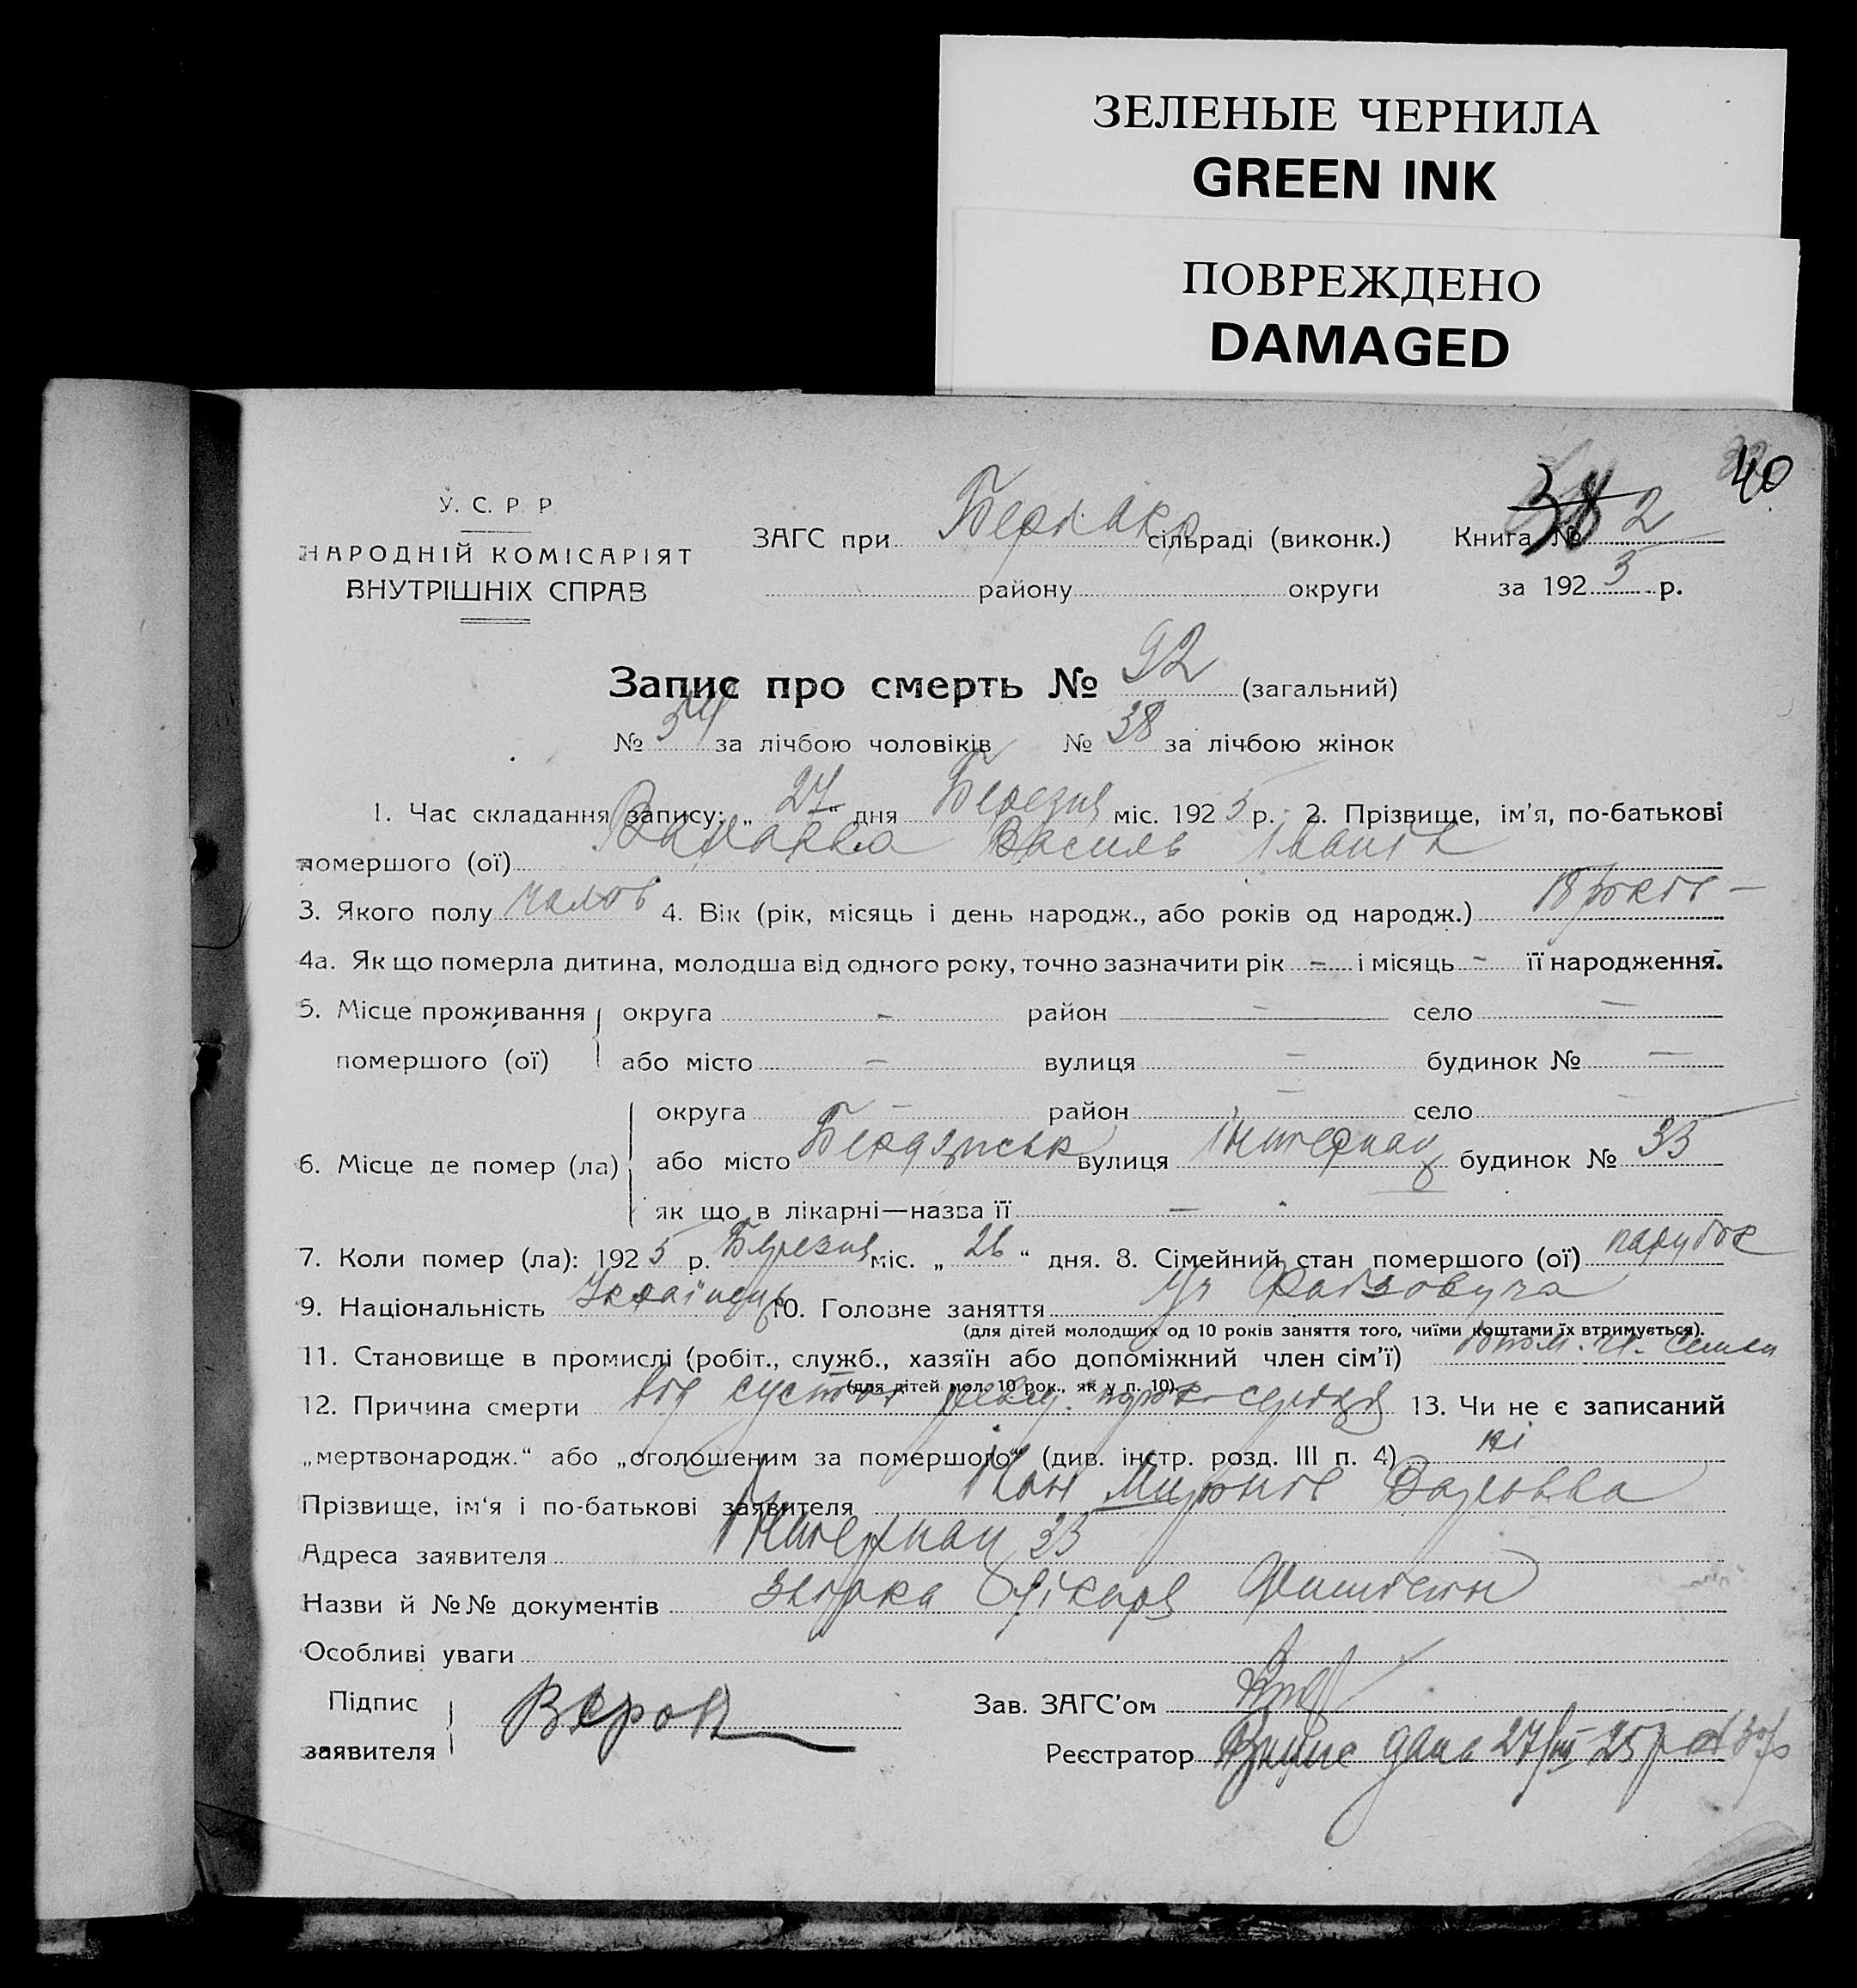 ЗЕЛЕНЫЕ ЧЕРНИЛА
GREEN INK
ПОВРЕЖДЕНО
DAMAGED
40
У. С. Р. Р.
НАРОДНІЙ КОМІСАРІЯТ
ВНУТРІШНІХ СПРАВ
ЗАГС при сільраді (виконк.) Книга № 38 2
району округи за 1925 р.
Запис про смерть № 92 (загальний)
№ 54 за лічбою чоловіків № 38 за лічбою жінок
1. Час складання запису: „27“ дня Березня міс. 1925 р. 2. Прізвище, ім’я, по-батькові
помершого (ої) Василь Іванів
3. Якого полу чолов 4. Вік (рік, місяць і день народж., або років од народж.) 18 років —
4а. Як що померла дитина, молодша від одного року, точно зазначити рік – і місяць - її народження.
5. Місце проживання округа – район — село —
помершого (ої) або місто – вулиця — будинок № —
округа — район — село
6. Місце де помер (ла) або місто Бердянськ вулиця Интернац будинок № 33
як що в лікарні—назва її —
7. Коли помер (ла): 1925 р. Березня міс. „26“ дня. 8. Сімейний стан помершого (ої) парубок
9. Національність Українець 10. Головне заняття Уч
(для дітей молодших од 10 років заняття того, чиїми коштами їх втримується).
11. Становище в промислі (робіт., служб., хазяїн або допоміжний член сім’ї) чл. семьи
(для дітей мол. 10 рок., як у п. 10).
12. Причина смерти від сустав порок серця 13. Чи не є записаний
„мертвонародж.“ або „оголошеним за помершого“ (див. інстр. розд. III п. 4) ні
Прізвище, ім‘я і по-батькові заявителя
Адреса заявителя Интернац 33
Назви й №№ документів лікаря
Особливі уваги
Підпис
заявителя
Зав. ЗАГС’ом
Реєстратор дана 27/III-25 р